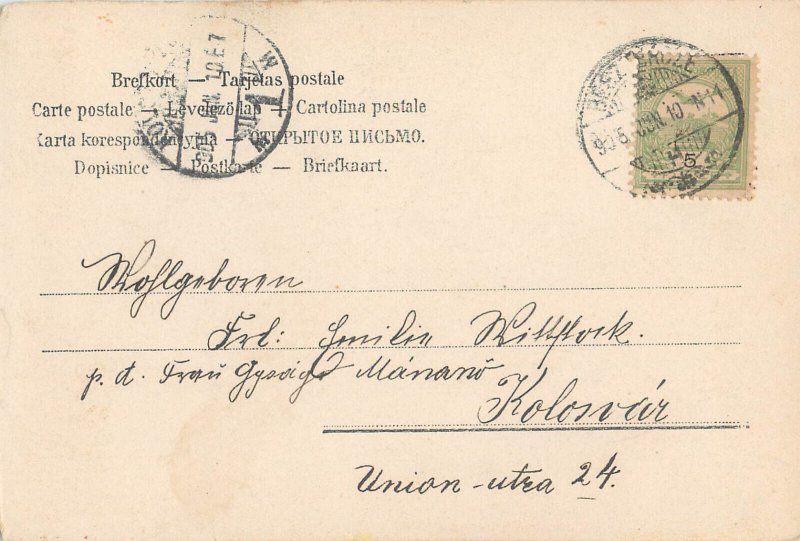 Brefkort — Tarjetas postale
Carte postale — Levelező lap — Cartolina postale
Karta korespondencyjna — ОТКРЫТОЕ ПИСЬМО.
Dopisnice — Postkarte — Briefkaart.
5
Wohlgeboren
Frl: Emilie Wittstock.
p. d. Frau
Kolosvár
Union-utza 24.